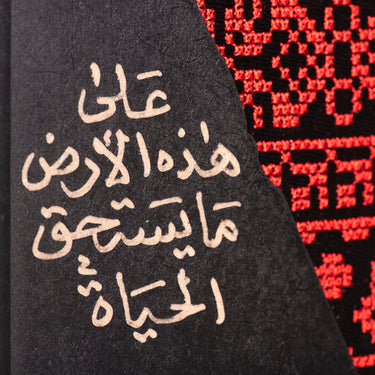 عَلىٰ
هٰذه الأرض
مَا يَستَحق
الحَيَاةْ